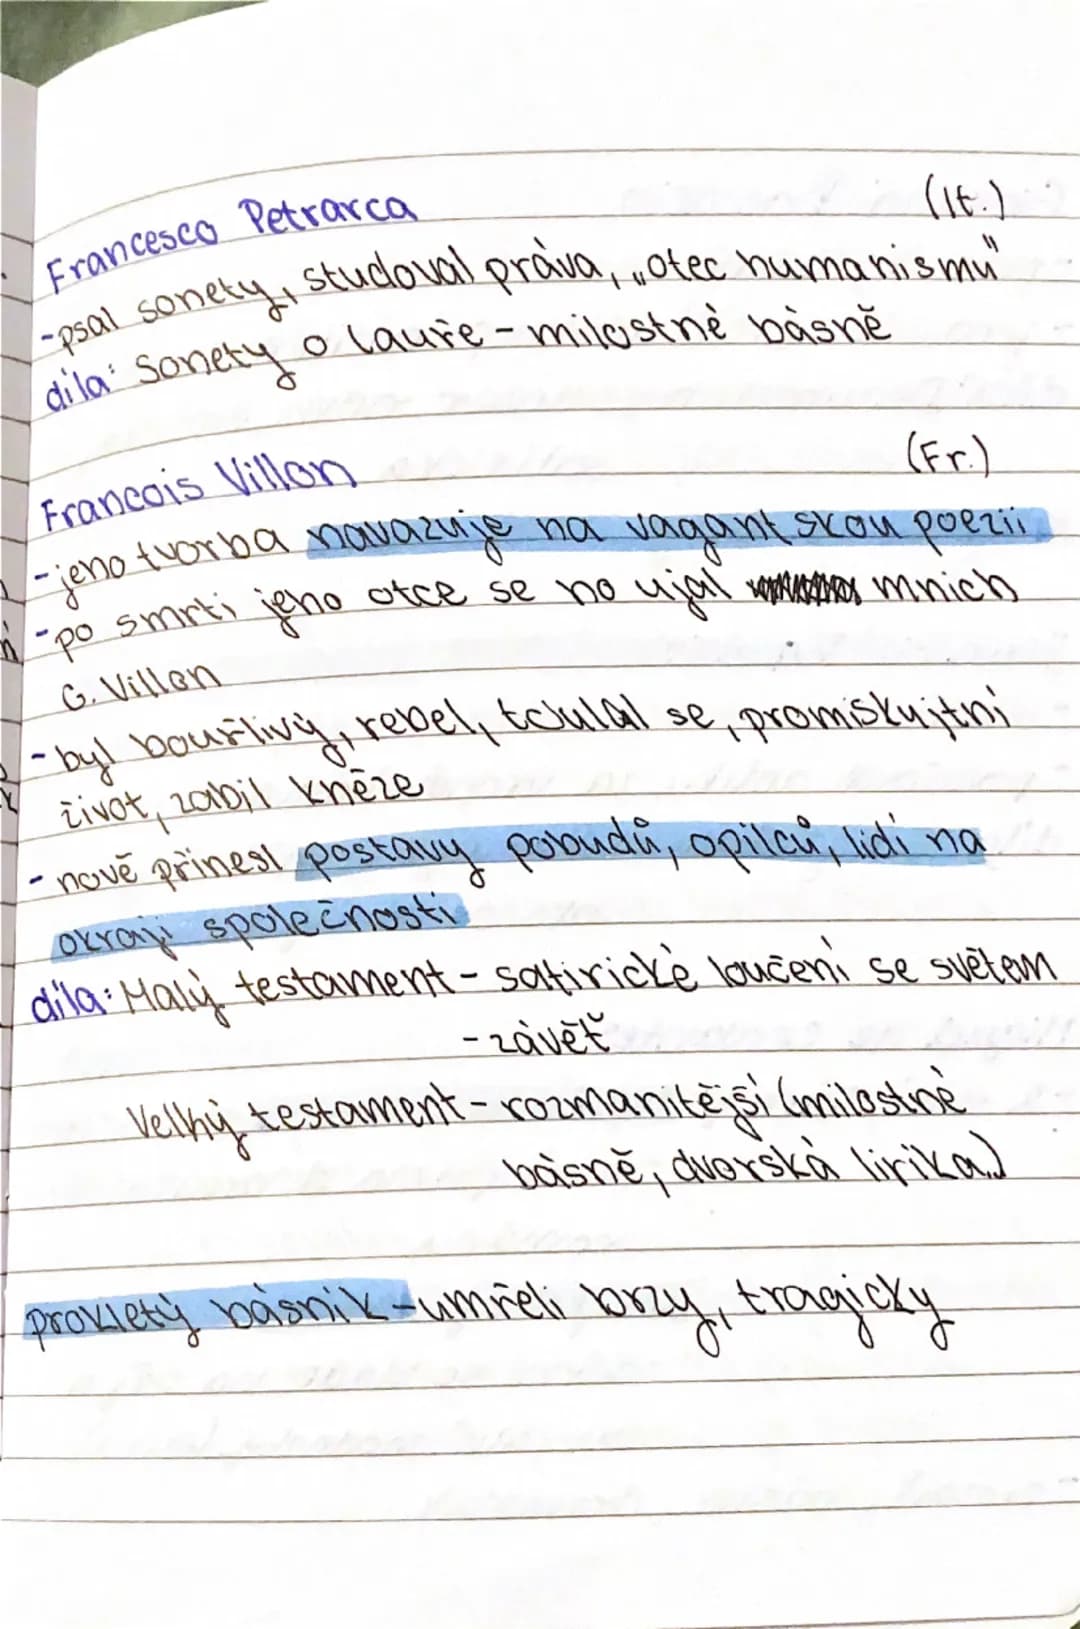 Francesco Petrarca (It.)
-psal sonety, studoval práva, „otec humanismu"
díla: Sonety o Lauře - milostné básně
Francois Villon (Fr.)
-jeho tvorba navazuje na vagantskou poezii
-po smrti jeho otce se ho ujal mnich
G. Villon
-byl bouřlivý, rebel, toulal se, promiskujtní
život, zabil kněze
- nově přinesl postavy pobudů, opilců, lidí na
okraji společnosti
díla: Malý testament - satirické loučení se světem
- závěť
Velký testament - rozmanitější (milostné
básně, dvorská lirika..)
prokletý básník - umřeli brzy, tragicky